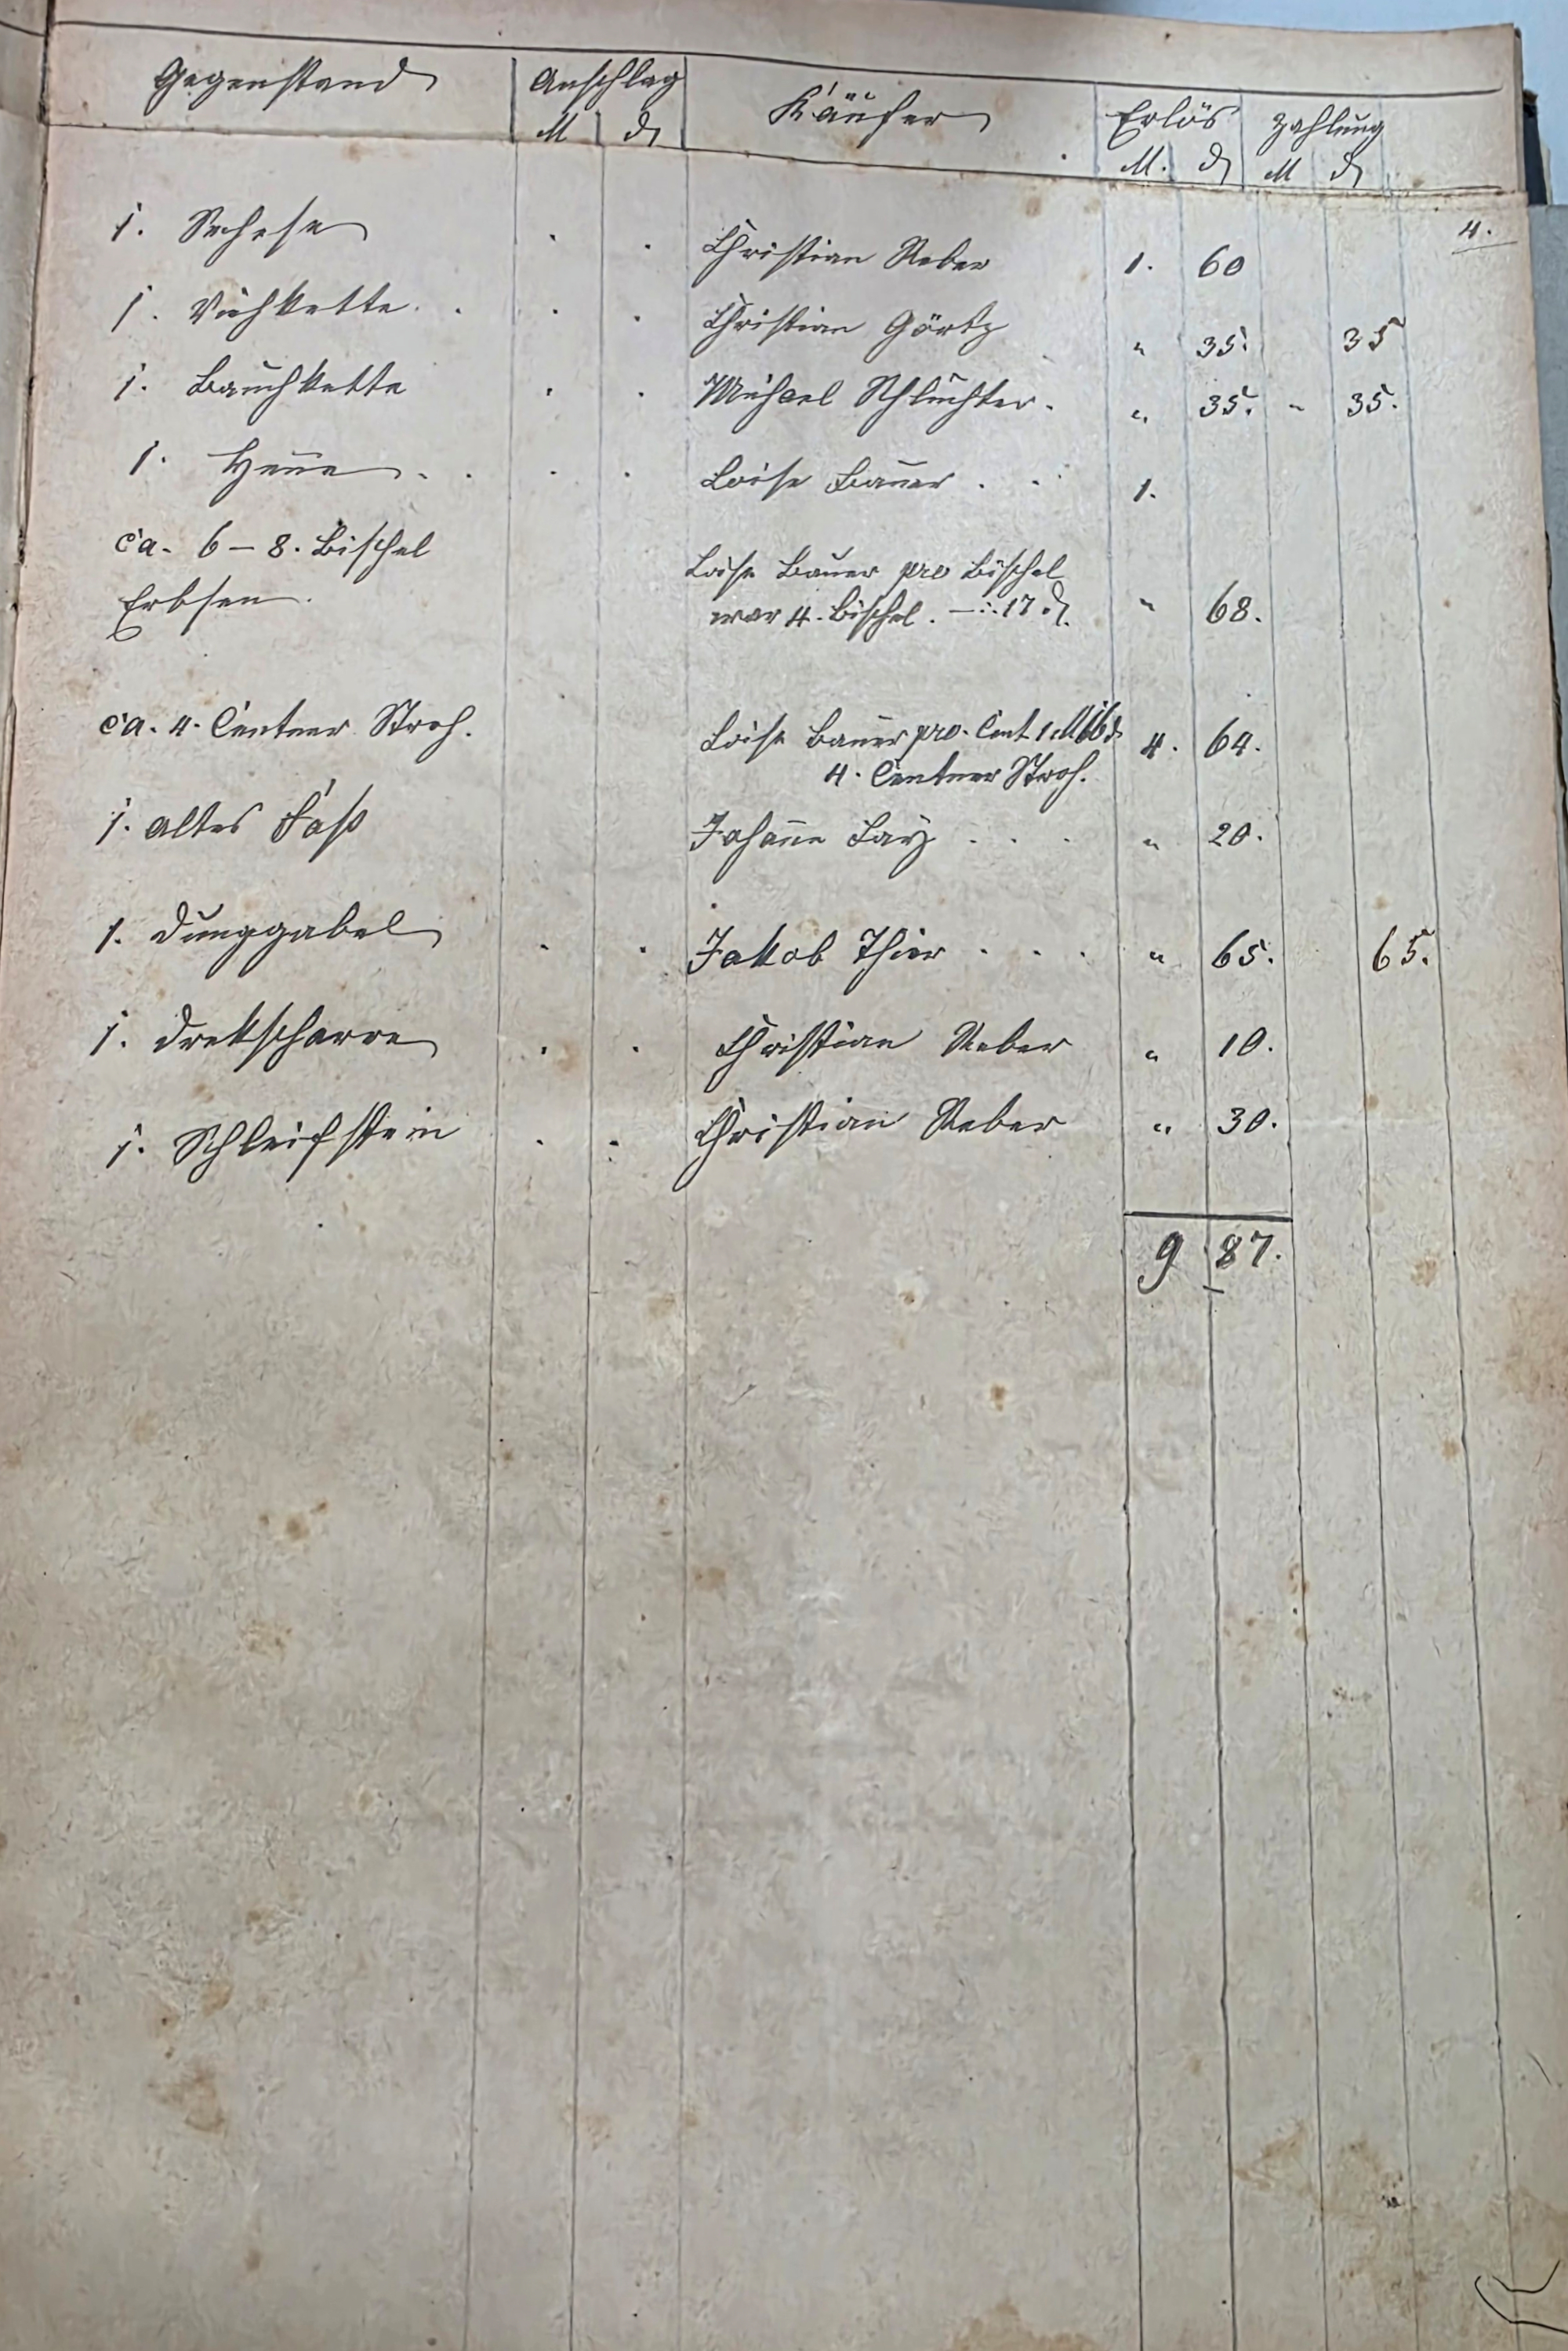 Gegenstand Anschlag Käufer Erlös Zahlung
M ₰ M. ₰ M ₰
4.
1. Sechese Christian Reber 1. 60
1. Viehkette Christian Görtz " 35. 35
1. Bauchkette Michael Schlüchter. " 35. " 35.
1. Hen̄e Loise Bauer 1.
ca. 6 – 8. Bischel
Erbsen.
Loise Bauer pro Bischel
war 4. Bischel. –:17 ₰. " 68.
ca. 4. Centner Stroh. Loise Bauer pro. Cent 1 M 16 ₰ 4. 64.
4. Centner Stroh.
1. altes Faß Johan̄e " 20.
1. Dunggabel Jakob Thier " 65. 65.
1. Drekscharre Christian Reber " 10.
1. Schleifstein Christian Reber " 30.
9 87.